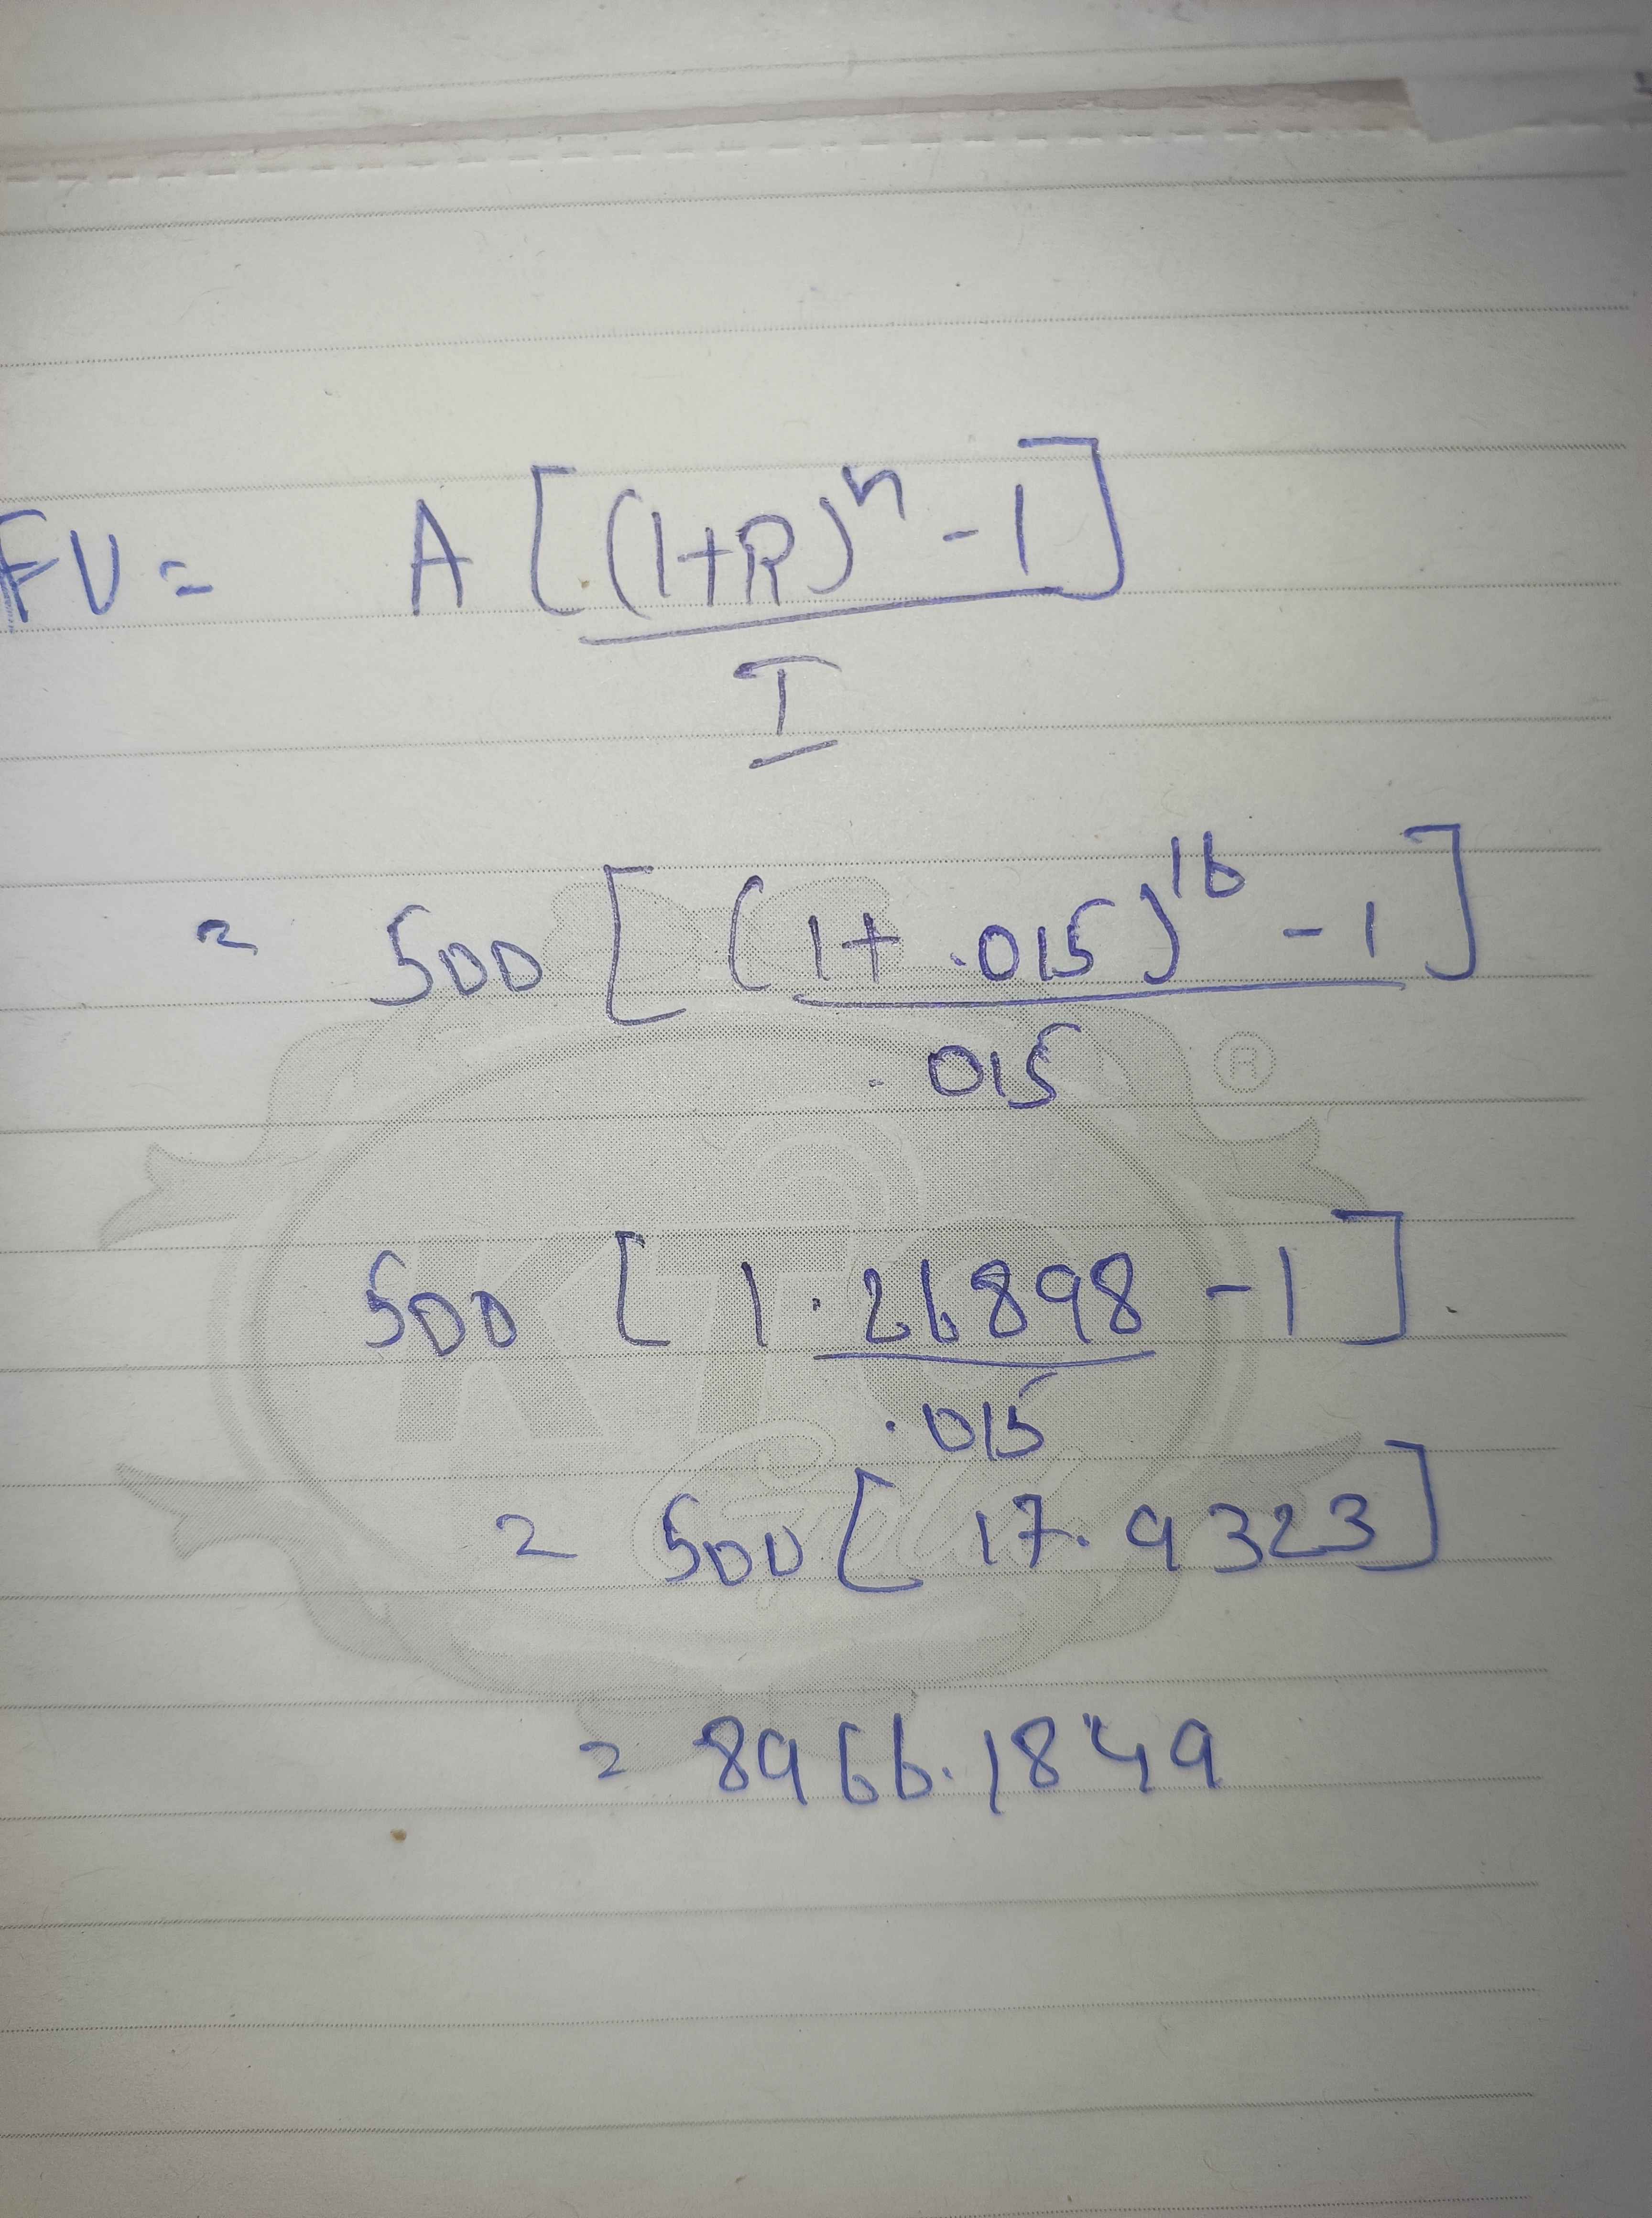 FV = A [(1+R)^n - 1]
I
= 500 [(1+ .015)^16 - 1]
.015
®
500 [1.26898 - 1].
.015
= 500 [17.9323]
= 8966.1849